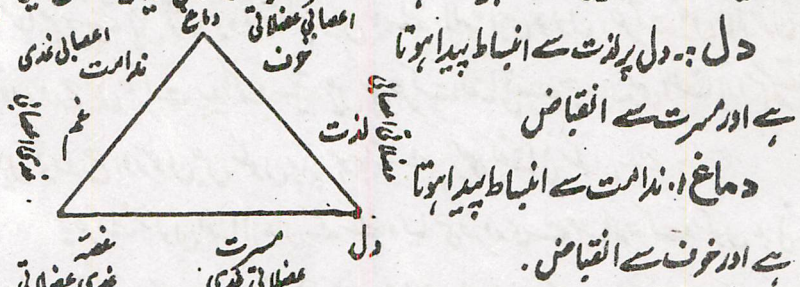 دل :۔ دل پر لذت سے انبساط پیدا ہوتا
ہے اور مسرت سے انقباض
دماغ :۔ ندامت سے انبساط پیدا ہوتا
ہے اور خوف سے انقباض ۔
دماغ
اعصابی عضلاتی
خوف
اعصابی غدی
ندامت
غم
غدی اعصابی
لذت
عضلاتی اعصابی
دل
مسرت
عضلاتی غدی
غصہ
غدی عضلاتی